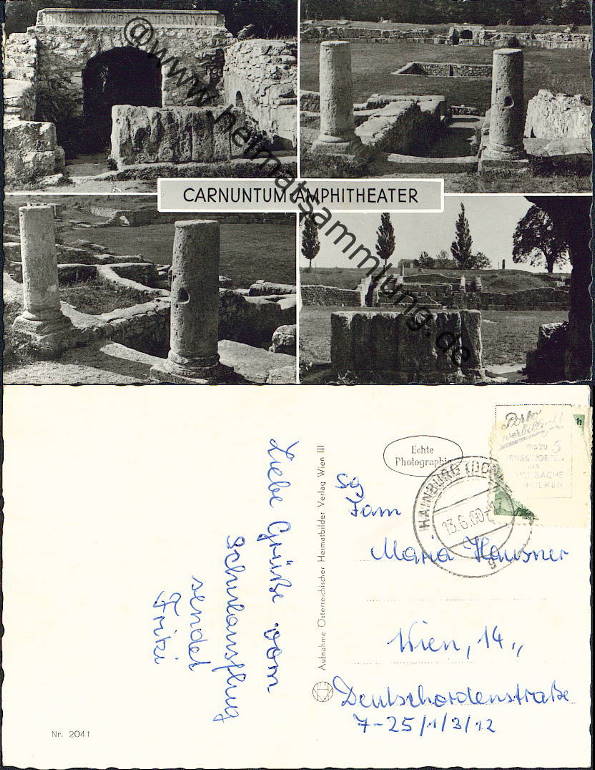 CARNUNTUM AMPHITHEATER
©www.heimatsammlung.de
Liebe Grüße vom
Schulausflug
sendet
Fritzi
Nr. 2041
Aufnahme Österreichischer Heimatbilder Verlag Wien III
Echte
Photographie
HAINBURG
13.6.60
Fam
Maria Hausner
Wien, 14.,
Deutschordenstraße
7-25/1/3/12